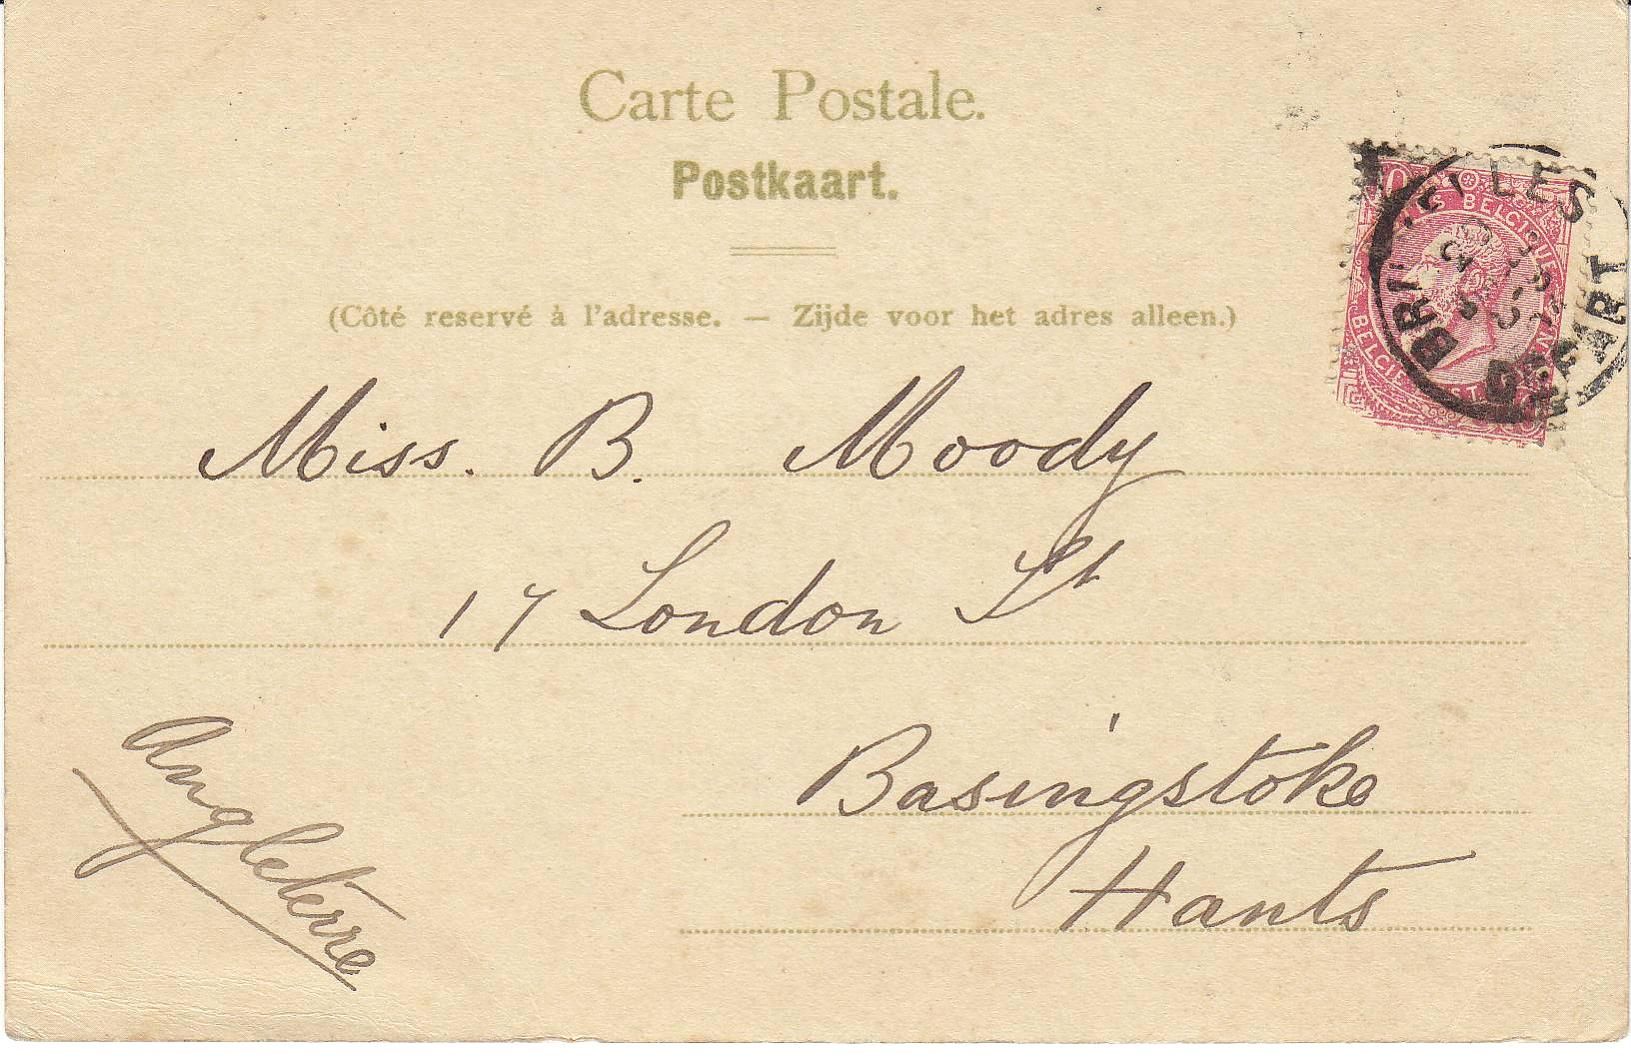 Carte Postale.
Postkaart.
(Côté reservé à l'adresse. — Zijde voor het adres alleen.)
BELGIQUE
BELGIE
DEPART
Miss. B. Moody
17 London St
Basingstoke
Hants
Angleterre